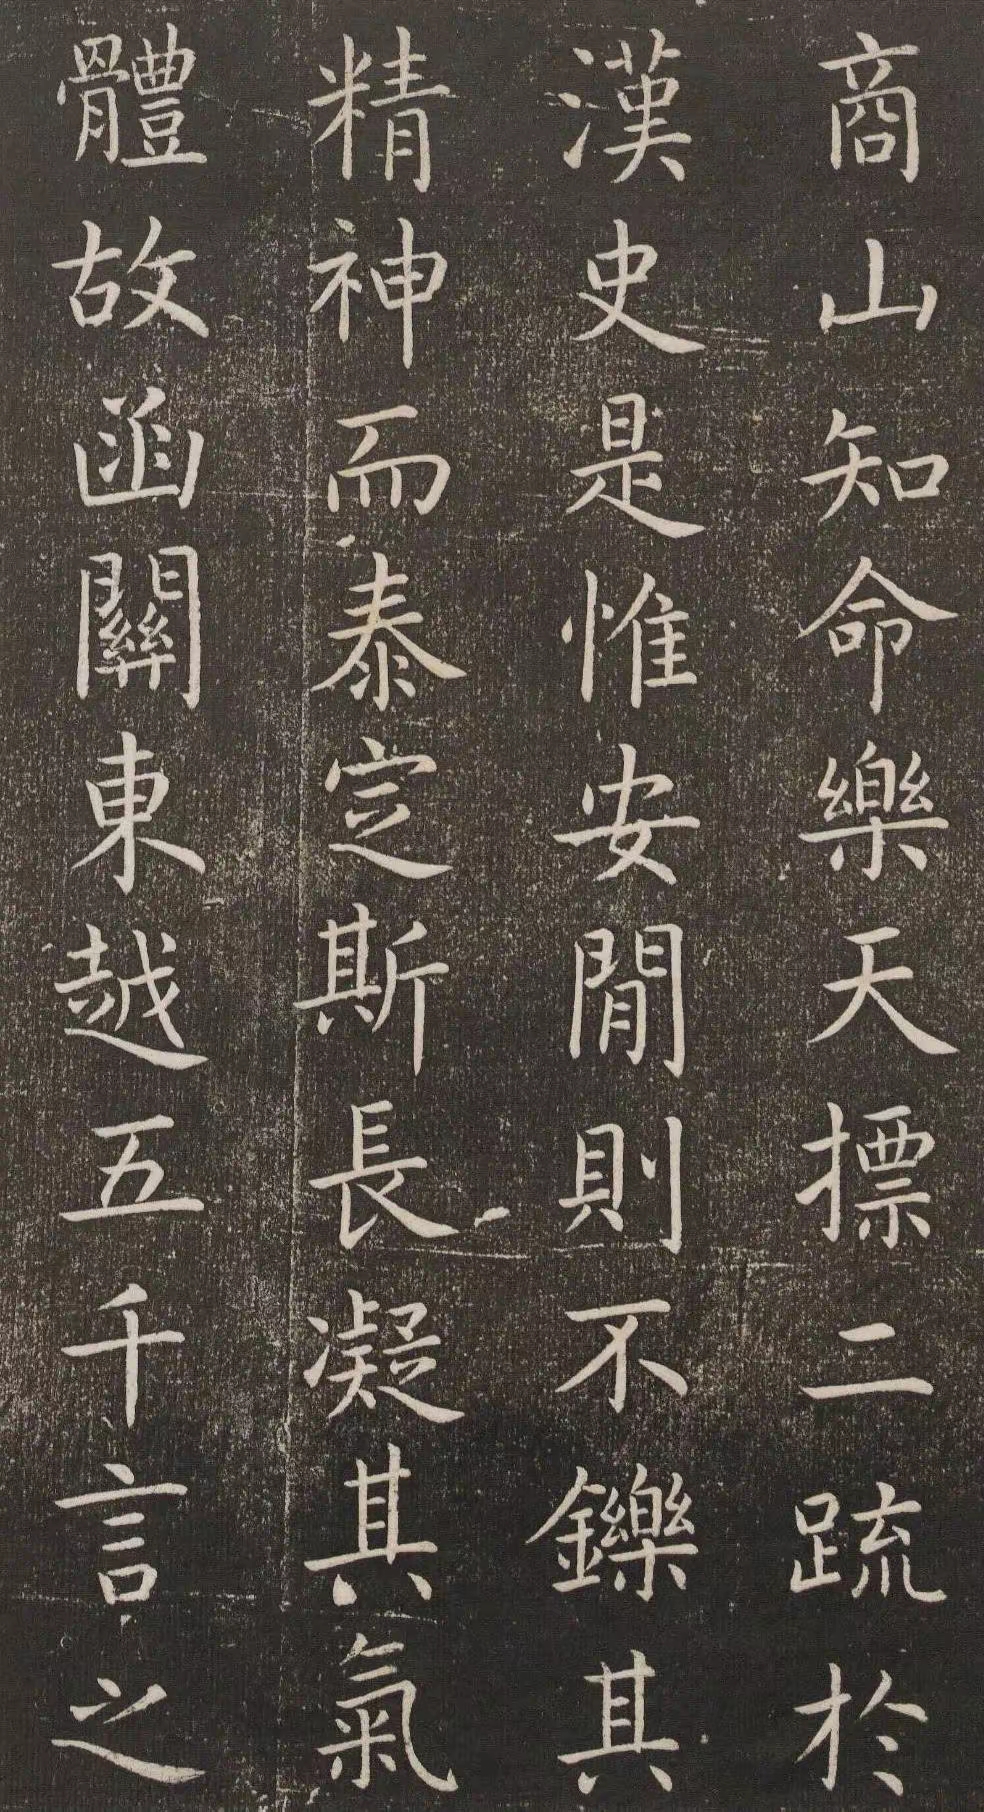 商山知命樂天標二疏於
漢史是惟安閒則不鑠其
精神而泰定斯長凝其氣
體故函關東越五千言之